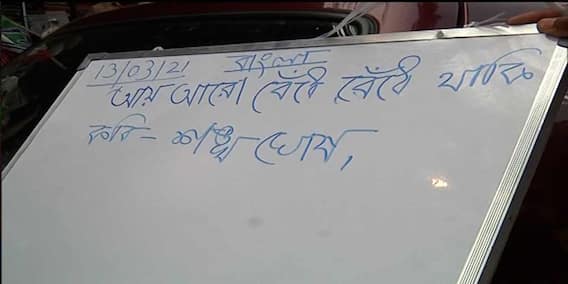 13/03/21 বাংলা
আয় আরো বেঁধে বেঁধে থাকি
কবি - শঙ্খ ঘোষ,